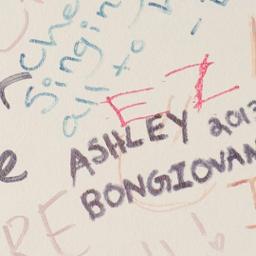 Che
Singin
all to
EZ
ASHLEY 2013
BONGIOVAN
RE